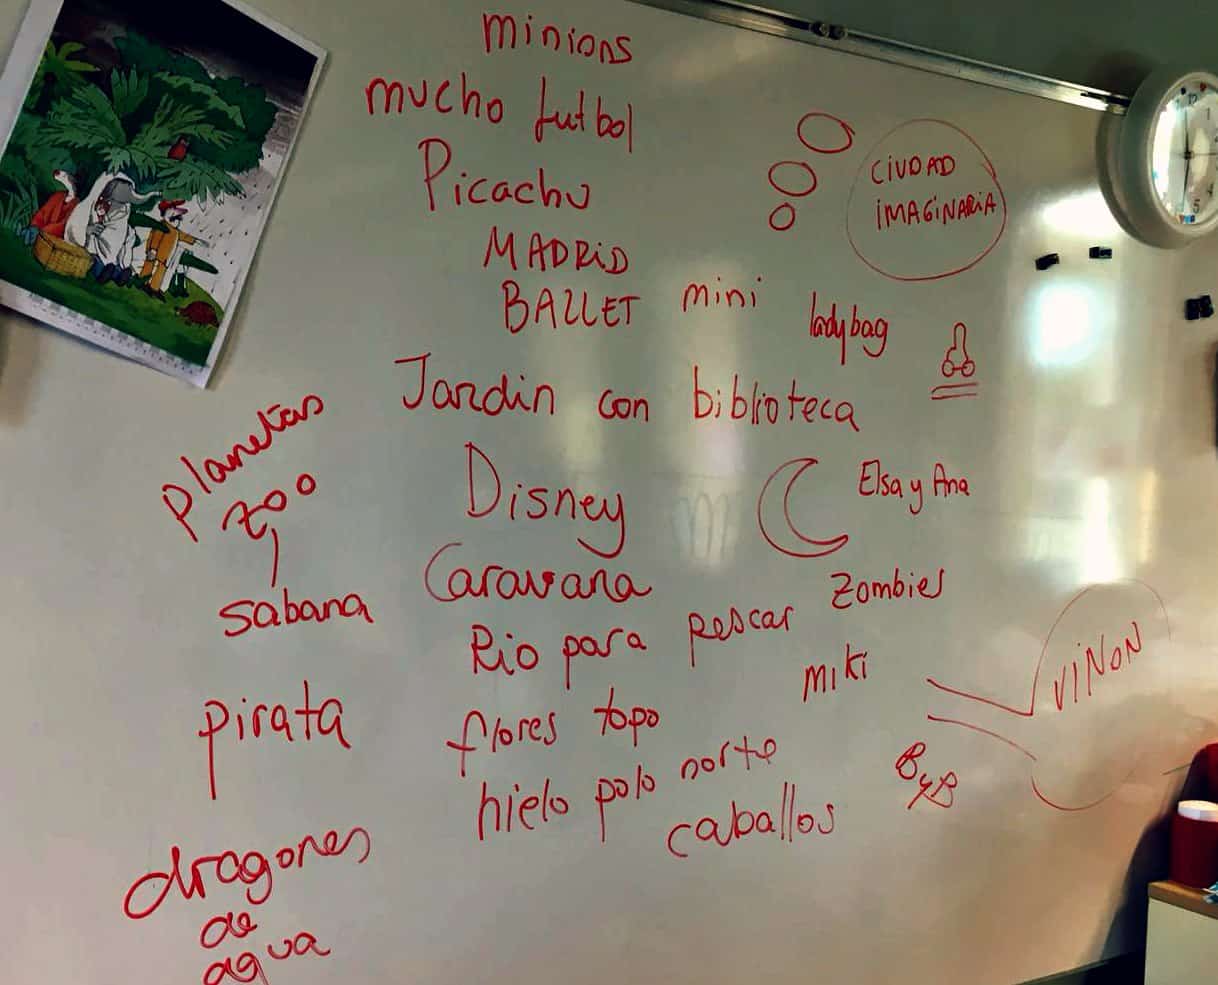 minions
mucho futbol
Picachu
CIUDAD
IMAGINARIA
MADRID
BALLET mini ladybag
Jardin con biblioteca
Planetas
zoo
sabana
Disney
Elsa y Ana
Caravana
Zombies
Rio para pescar
miki
VINON
pirata
flores topo
hielo polo norte
caballos
ByB
dragones
de
agua